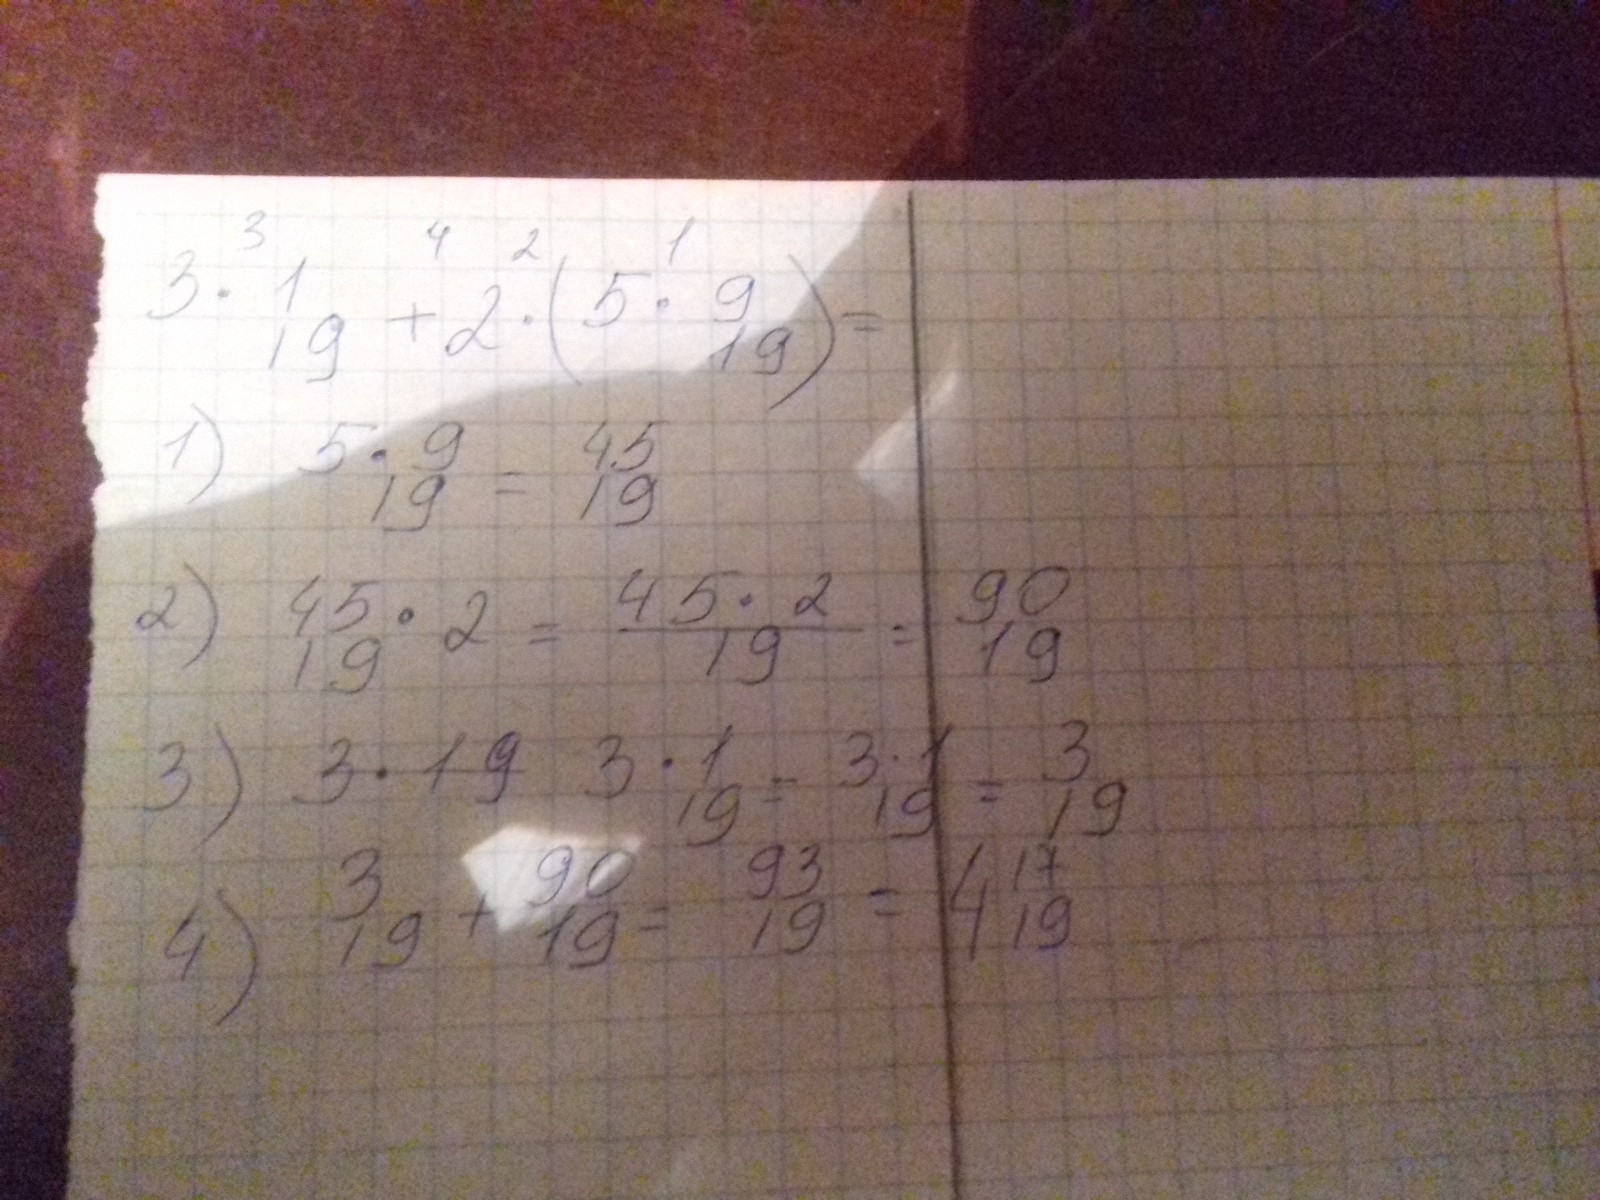 3 · 1/19 + 2 · (5 · 9/19) =
3 4 2 1
1) 5 · 9/19 = 45/19
2) 45/19 · 2 = 45 · 2/19 = 90/19
3) 3 · 19 3 · 1/19 = 3 · 1/19 = 3/19
4) 3/19 + 90/19 = 93/19 = 4 17/19